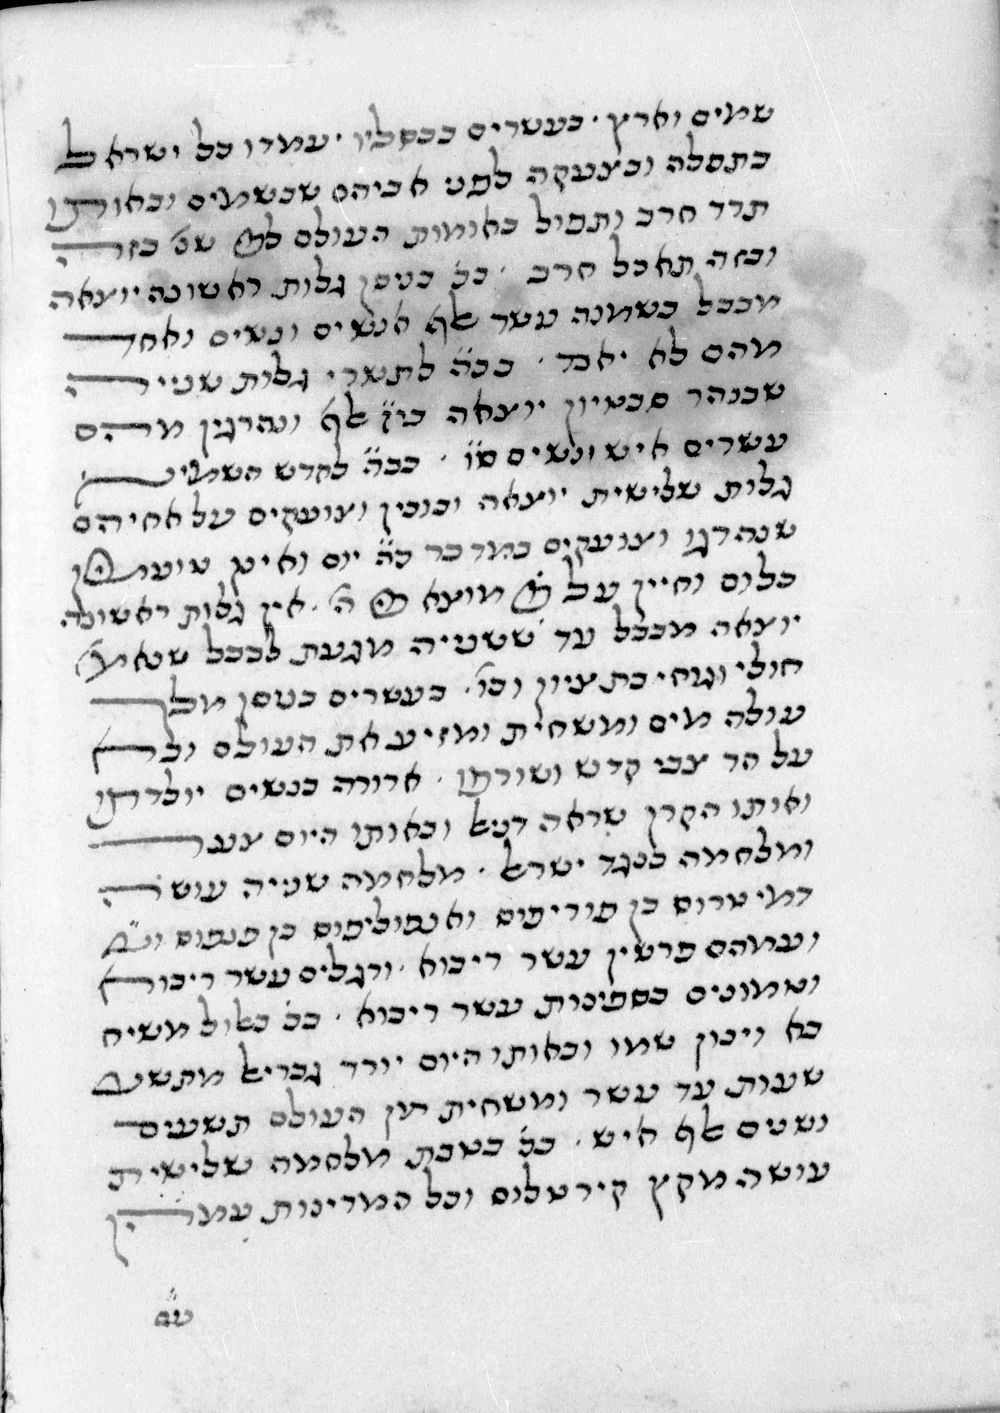 שמים וארץ · בעשרים בכסליו · עמדו כל ישראל
בתפלה ובצעקה לפני אביהם שבשמים ובאותו
תרד חרב ותפול באומות העולם שנ׳ כזה
וכזה תאכל חרב · בכ׳ בניסן גלות ראשונה יוצאה
מבבל בשמנה עשר אלף אנשים ונשים ואחד
מהם לא יאבד · בכ״ה לתשרי גלות שנייה
שבנהר סבטיון יוצאה בי״ז אלף ונהרגין מהם
עשרים איש ונשים ט״ו · בכ״ה לחדש השמיני
גלות שלישית יוצאה ובוכין וצועקים על אחיהם
שנהרגו וצועקים במדבר כ״ה יום ואינן טועמין
כלום וחיין על מוצא פי ה׳ · אין גלות ראשונה
יוצאה מבבל עד ששנייה מגעת לבבל שנאמ׳
חולי וגוחי בת ציון וכו׳ · בעשרים בניסן מלך
עולה מים ומשחית ומזיע את העולם ובא
על הר צבי קדש ושורפו · ארורה בנשים יולדתו
ואותו הקרן שראה דניאל ובאותו היום צער
ומלחמה כנגד ישראל · מלחמה שנייה עושה
דמיטרוס בן פוריפוס ואנפוליפוס בן פנפוס
ועמהם פרשין עשר ריבוא · ורגלים עשר ריבוא
וטמונים בספינות עשר ריבוא · בכ׳ באלול משיח
בא וינון שמו ובאותו היום יורד גבריאל מתשע
שעות עד עשר ומשחית מן העולם תשעים
ושנים אלף איש · בכ׳ בטבת מלחמה שלישית
עושה מקץ קירטלוס וכל המדינות עמהן